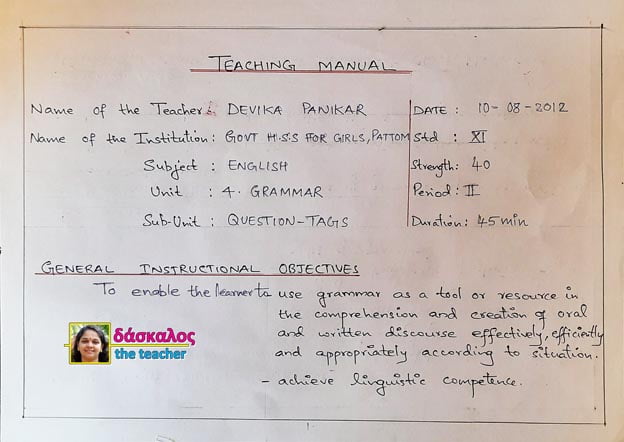 TEACHING MANUAL
Name of the Teacher: DEVIKA PANIKAR
DATE : 10-08-2012
Name of the Institution : GOVT H.S.S FOR GIRLS, PATTOM
Std : XI
Subject : ENGLISH
Strength: 40
Unit : 4. GRAMMAR
Period: II
Sub-Unit : QUESTION-TAGS
Duration: 45 min
GENERAL INSTRUCTIONAL OBJECTIVES
To enable the learner to use grammar as a tool or resource in
the comprehension and creation of oral
and written discourse effectively, efficiently
and appropriately according to situation.
- achieve linguistic competence.
δάσκαλος
the teacher